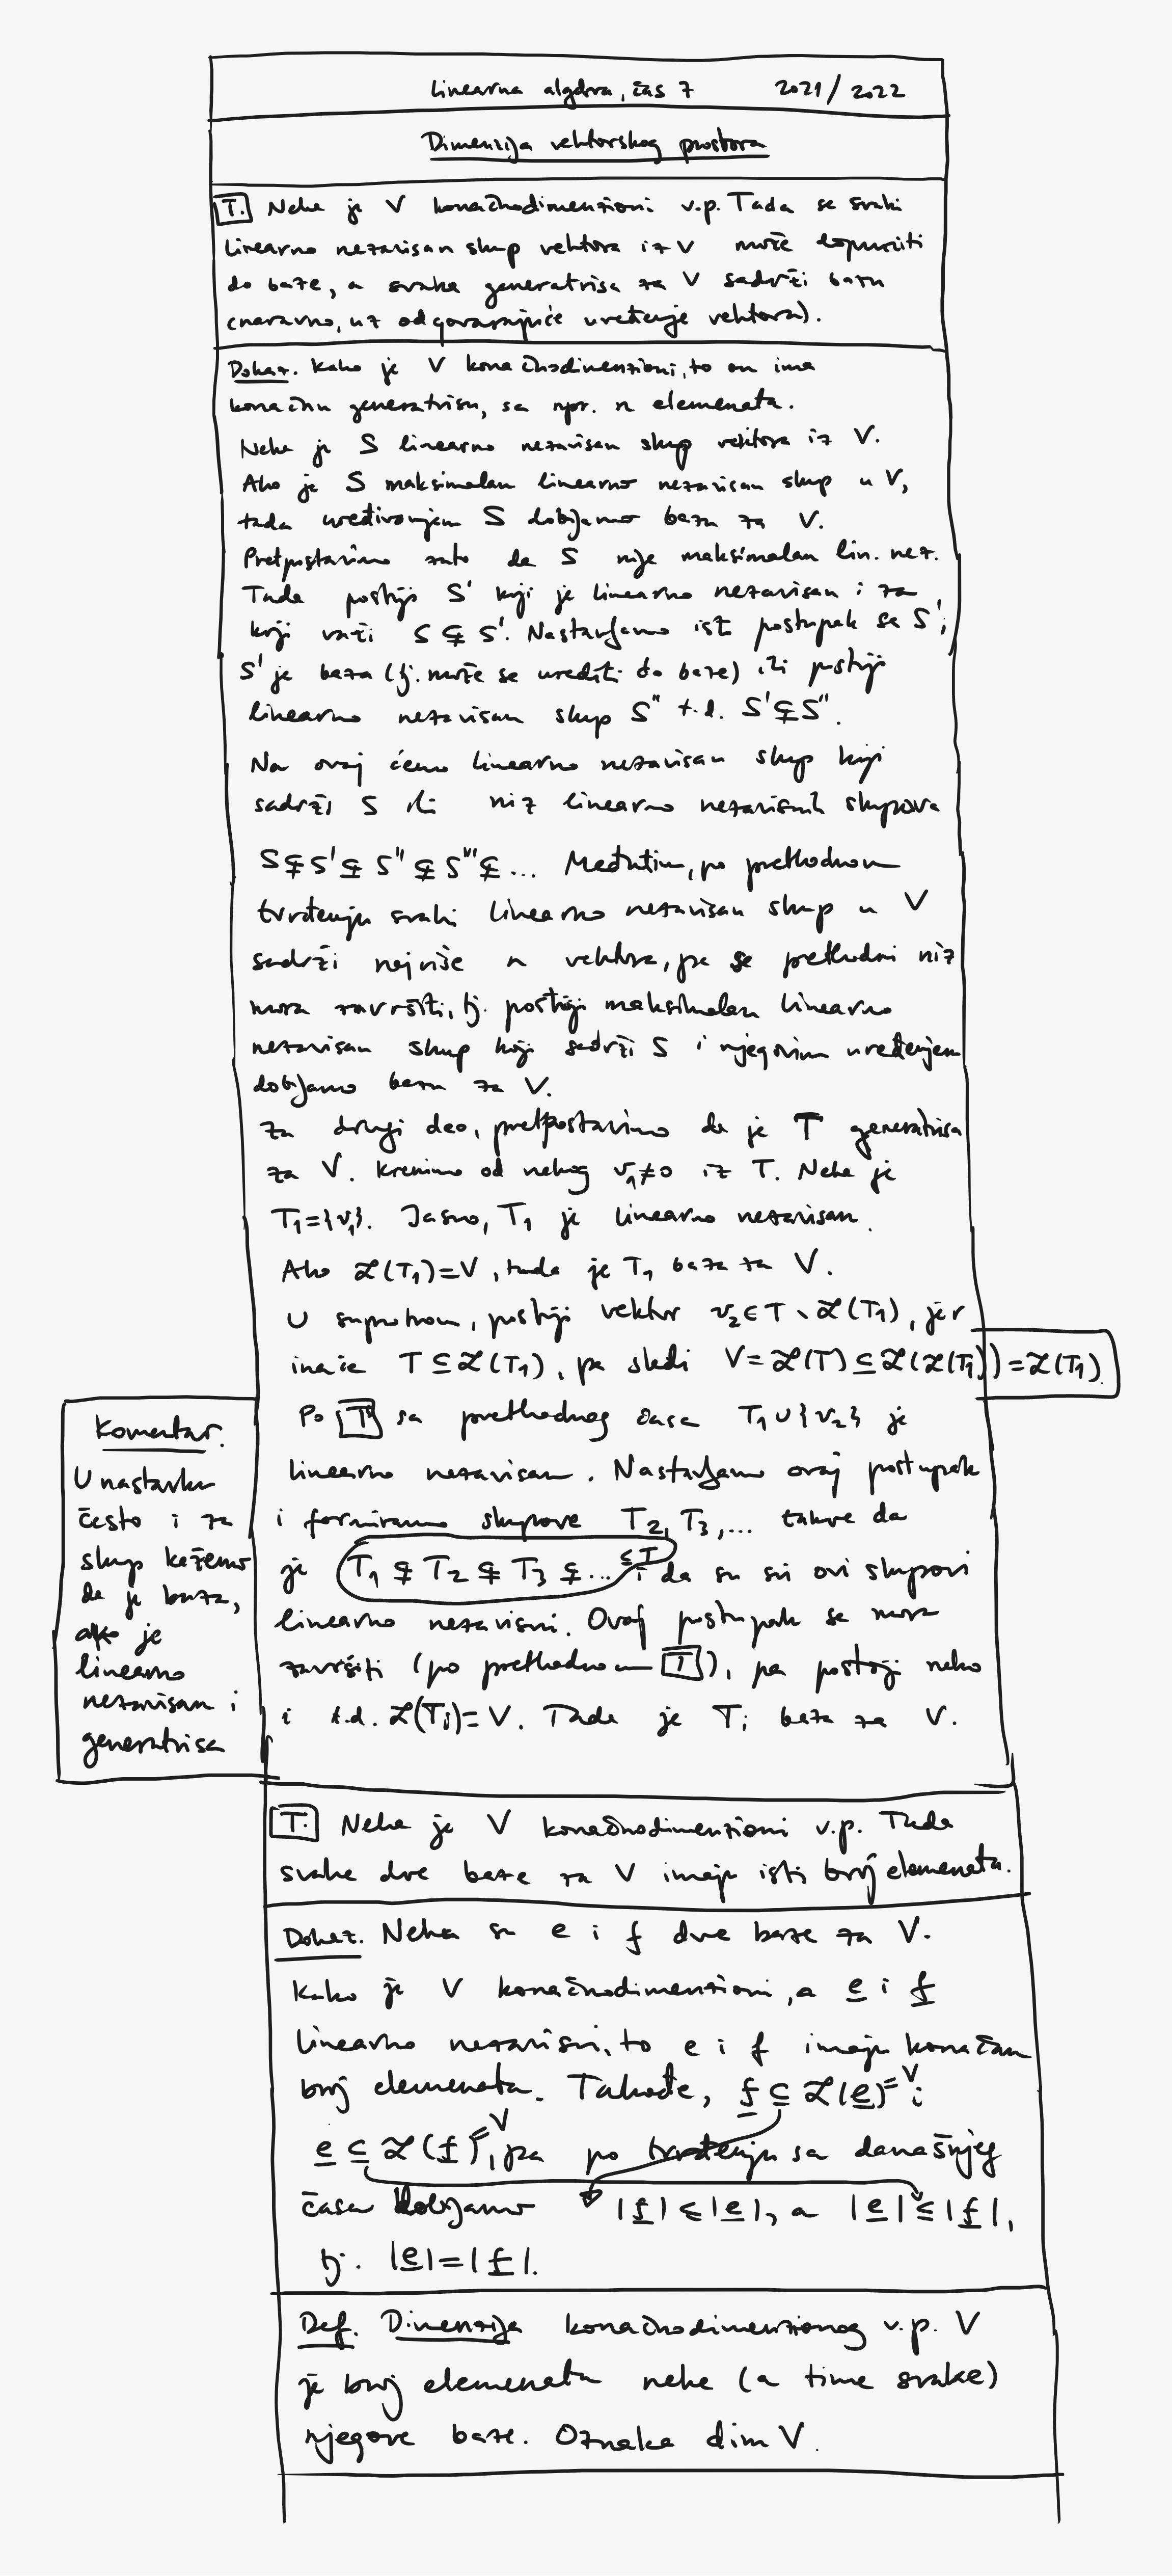 Linearna algebra, čas 7 2021/2022
Dimenzija vektorskog prostora
T. Neka je V konačnodimenzioni v.p. Tada se svaki
linearno nezavisan skup vektora iz V može dopuniti
do baze, a svaka generatrisa za V sadrži bazu
(naravno, uz odgovarajuće uređenje vektora).
Dokaz. Kako je V konačnodimenzioni, to on ima
konačnu generatrisu, sa npr. n elemenata.
Neka je S linearno nezavisan skup vektora iz V.
Ako je S maksimalan linearno nezavisan skup u V,
tada uređivanjem S dobijamo bazu za V.
Pretpostavimo zato da S nije maksimalan lin. nez.
Tada postoji S' koji je linearno nezavisan i za
koji važi S ⊊ S'. Nastavljamo isti postupak sa S';
S' je baza (tj. može se urediti do baze) ili postoji
linearno nezavisan skup S'' t.d. S' ⊊ S''.
Na ovaj ćemo linearno nezavisan skup koji
sadrži S ili niz linearno nezavisnih skupova
S ⊊ S' ⊊ S'' ⊊ S''' ⊊ ... Međutim, po prethodnom
tvrđenju svaki linearno nezavisan skup u V
sadrži najviše n vektora, pa se prethodni niz
mora završiti, tj. postoji maksimalan linearno
nezavisan skup koji sadrži S i njegovim uređenjem
dobijamo bazu za V.
Za drugi deo, pretpostavimo da je T generatrisa
za V. Krenimo od nekog v₁≠0 iz T. Neka je
T₁={v₁}. Jasno, T₁ je linearno nezavisan.
Ako ℒ(T₁)=V, tada je T₁ baza za V.
U suprotnom, postoji vektor v₂∈T∖ℒ(T₁), jer
inače T⊆ℒ(T₁), pa sledi V=ℒ(T)⊆ℒ(ℒ(T₁))=ℒ(T₁).
Po T sa prethodnog časa T₁∪{v₂} je
linearno nezavisan. Nastavljamo ovaj postupak
i formiramo skupove T₂, T₃,... takve da
je T₁ ⊊ T₂ ⊊ T₃ ⊊ ... ⊆T i da su svi ovi skupovi
linearno nezavisni. Ovaj postupak se mora
završiti (po prethodnom T), pa postoji neko
i t.d. ℒ(Tᵢ)=V. Tada je Tᵢ baza za V.
Komentar.
U nastavku
često i za
skup kažemo
da je baza,
ako je
linearno
nezavisan i
generatrisa
T. Neka je V konačnodimenzioni v.p. Tada
svake dve baze za V imaju isti broj elemenata.
Dokaz. Neka su e i f dve baze za V.
Kako je V konačnodimenzioni, a e i f
linearno nezavisni, to e i f imaju konačan
broj elemenata. Takođe, f ⊆ ℒ(e)=V i
e ⊆ ℒ(f)=V, pa po tvrđenju sa današnjeg
časa dobijamo |f| ≤ |e|, a |e| ≤ |f|,
tj. |e|=|f|.
Def. Dimenzija konačnodimenzionog v.p. V
je broj elemenata neke (a time svake)
njegove baze. Oznaka dim V.